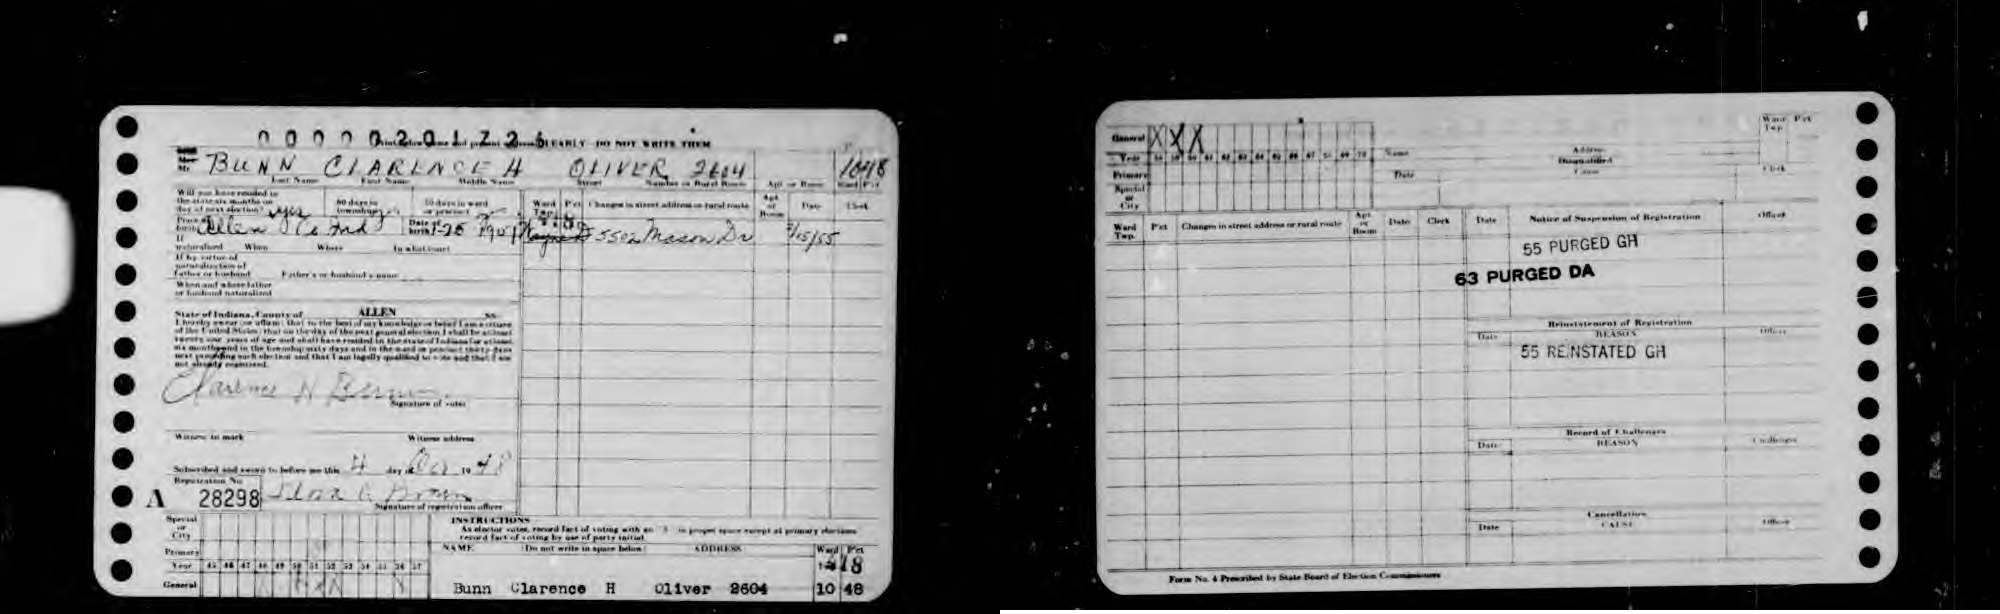 0 0 0 0 0 2 0 1 7 2 6
EARLY DO NOT WRITE THEM
Mr BUNN CLARENCE H OLIVER 2604 1048
Last Name First Name Middle Name Street Number or Rural Route Apt or Room Ward Pct
Will you have resided in the state six months on day of next election? yes
60 days in township?
30 days in ward or precinct
Place of birth Allen Co Ind
Date of birth 1-28 1901
If naturalized When Where In what court
If by virtue of naturalization of father or husband Father's or husband's name
When and where father or husband naturalized
Ward Twp. Pct Changes in street address or rural route Apt or Room Date Clerk
Wayne 5502 Mason Dr 9/15/55
State of Indiana, County of ALLEN SS
I hereby swear (or affirm) that to the best of my knowledge or belief I am a citizen
of the United States; that on the day of the next general election I shall be at least
twenty one years of age and shall have resided in the state of Indiana for at least
six months and in the township sixty days and in the ward or precinct thirty days
next preceding such election and that I am legally qualified to vote and that I am
not already registered.
Clarence H Bunn
Signature of voter
Witness to mark Witness address
Subscribed and sworn to before me this 4 day of Oct 1948
Registration No
A 28298
Signature of registration officer
Special or City
Primary
Year 45 46 47 48 49 50 51 52 53 54 55 56 57
General X X X X
INSTRUCTIONS
As elector votes, record fact of voting with an X in proper space except at primary elections
record fact of voting by use of party initial
NAME (Do not write in space below) ADDRESS Ward Pct
18
Bunn Clarence H Oliver 2604 10 48
General X X X
Year 58 59 60 61 62 63 64 65 66 67 68 69 70
Primary
Special or City
Name Address
Disqualified
Date Cause
Ward Twp Pct
Clerk
Ward Twp. Pct Changes in street address or rural route Apt or Room Date Clerk
Date Notice of Suspension of Registration Officer
55 PURGED GH
63 PURGED DA
Reinstatement of Registration
Date REASON Officer
55 REINSTATED GH
Record of Challenges
Date REASON Challenger
Cancellation
Date CAUSE Officer
Form No. 4 Prescribed by State Board of Election Commissioners